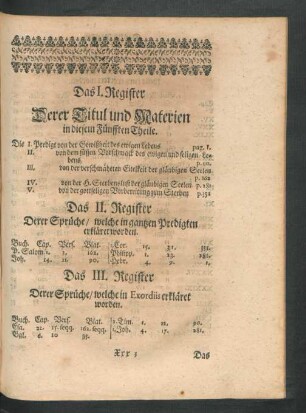 Das I. Register
Derer Titul und Materien
in diesem Fünfften Theile.
Die I. Predigt von der Gewißheit des ewigen Lebens pag. 1.
II. von dem süssen Vorschmack des ewigen und seligen Le-
bens p. 90.
III. von der Einbeit der gläubigen Seelen
p. 162
IV. von der H. Sterbens-Lust der gläubigen Seelen p. 281.
V. von der Vorbereitung zum Sterben p. 351
Das II. Register
Derer Sprüche / welche in gantzen Predigten
erkläret worden.
Buch. Cap. Vers. Blat.
Cor. 15. 31. 351.
P. Salom. 2. 1. 162.
Philipp. 1. 23. 281.
Joh. 14. 21 90.
Hebr. 4. 9. 1.
Das III. Register
Derer Sprüche / welche in Exordiis erkläret
worden.
Buch. Cap. Vers. Blat.
2. Tim. 1. 12. 90.
Esa. 21. 162. seqq.
1. Joh. 4. 17. 281.
Gal. 6. 10
Xxx 3 Das